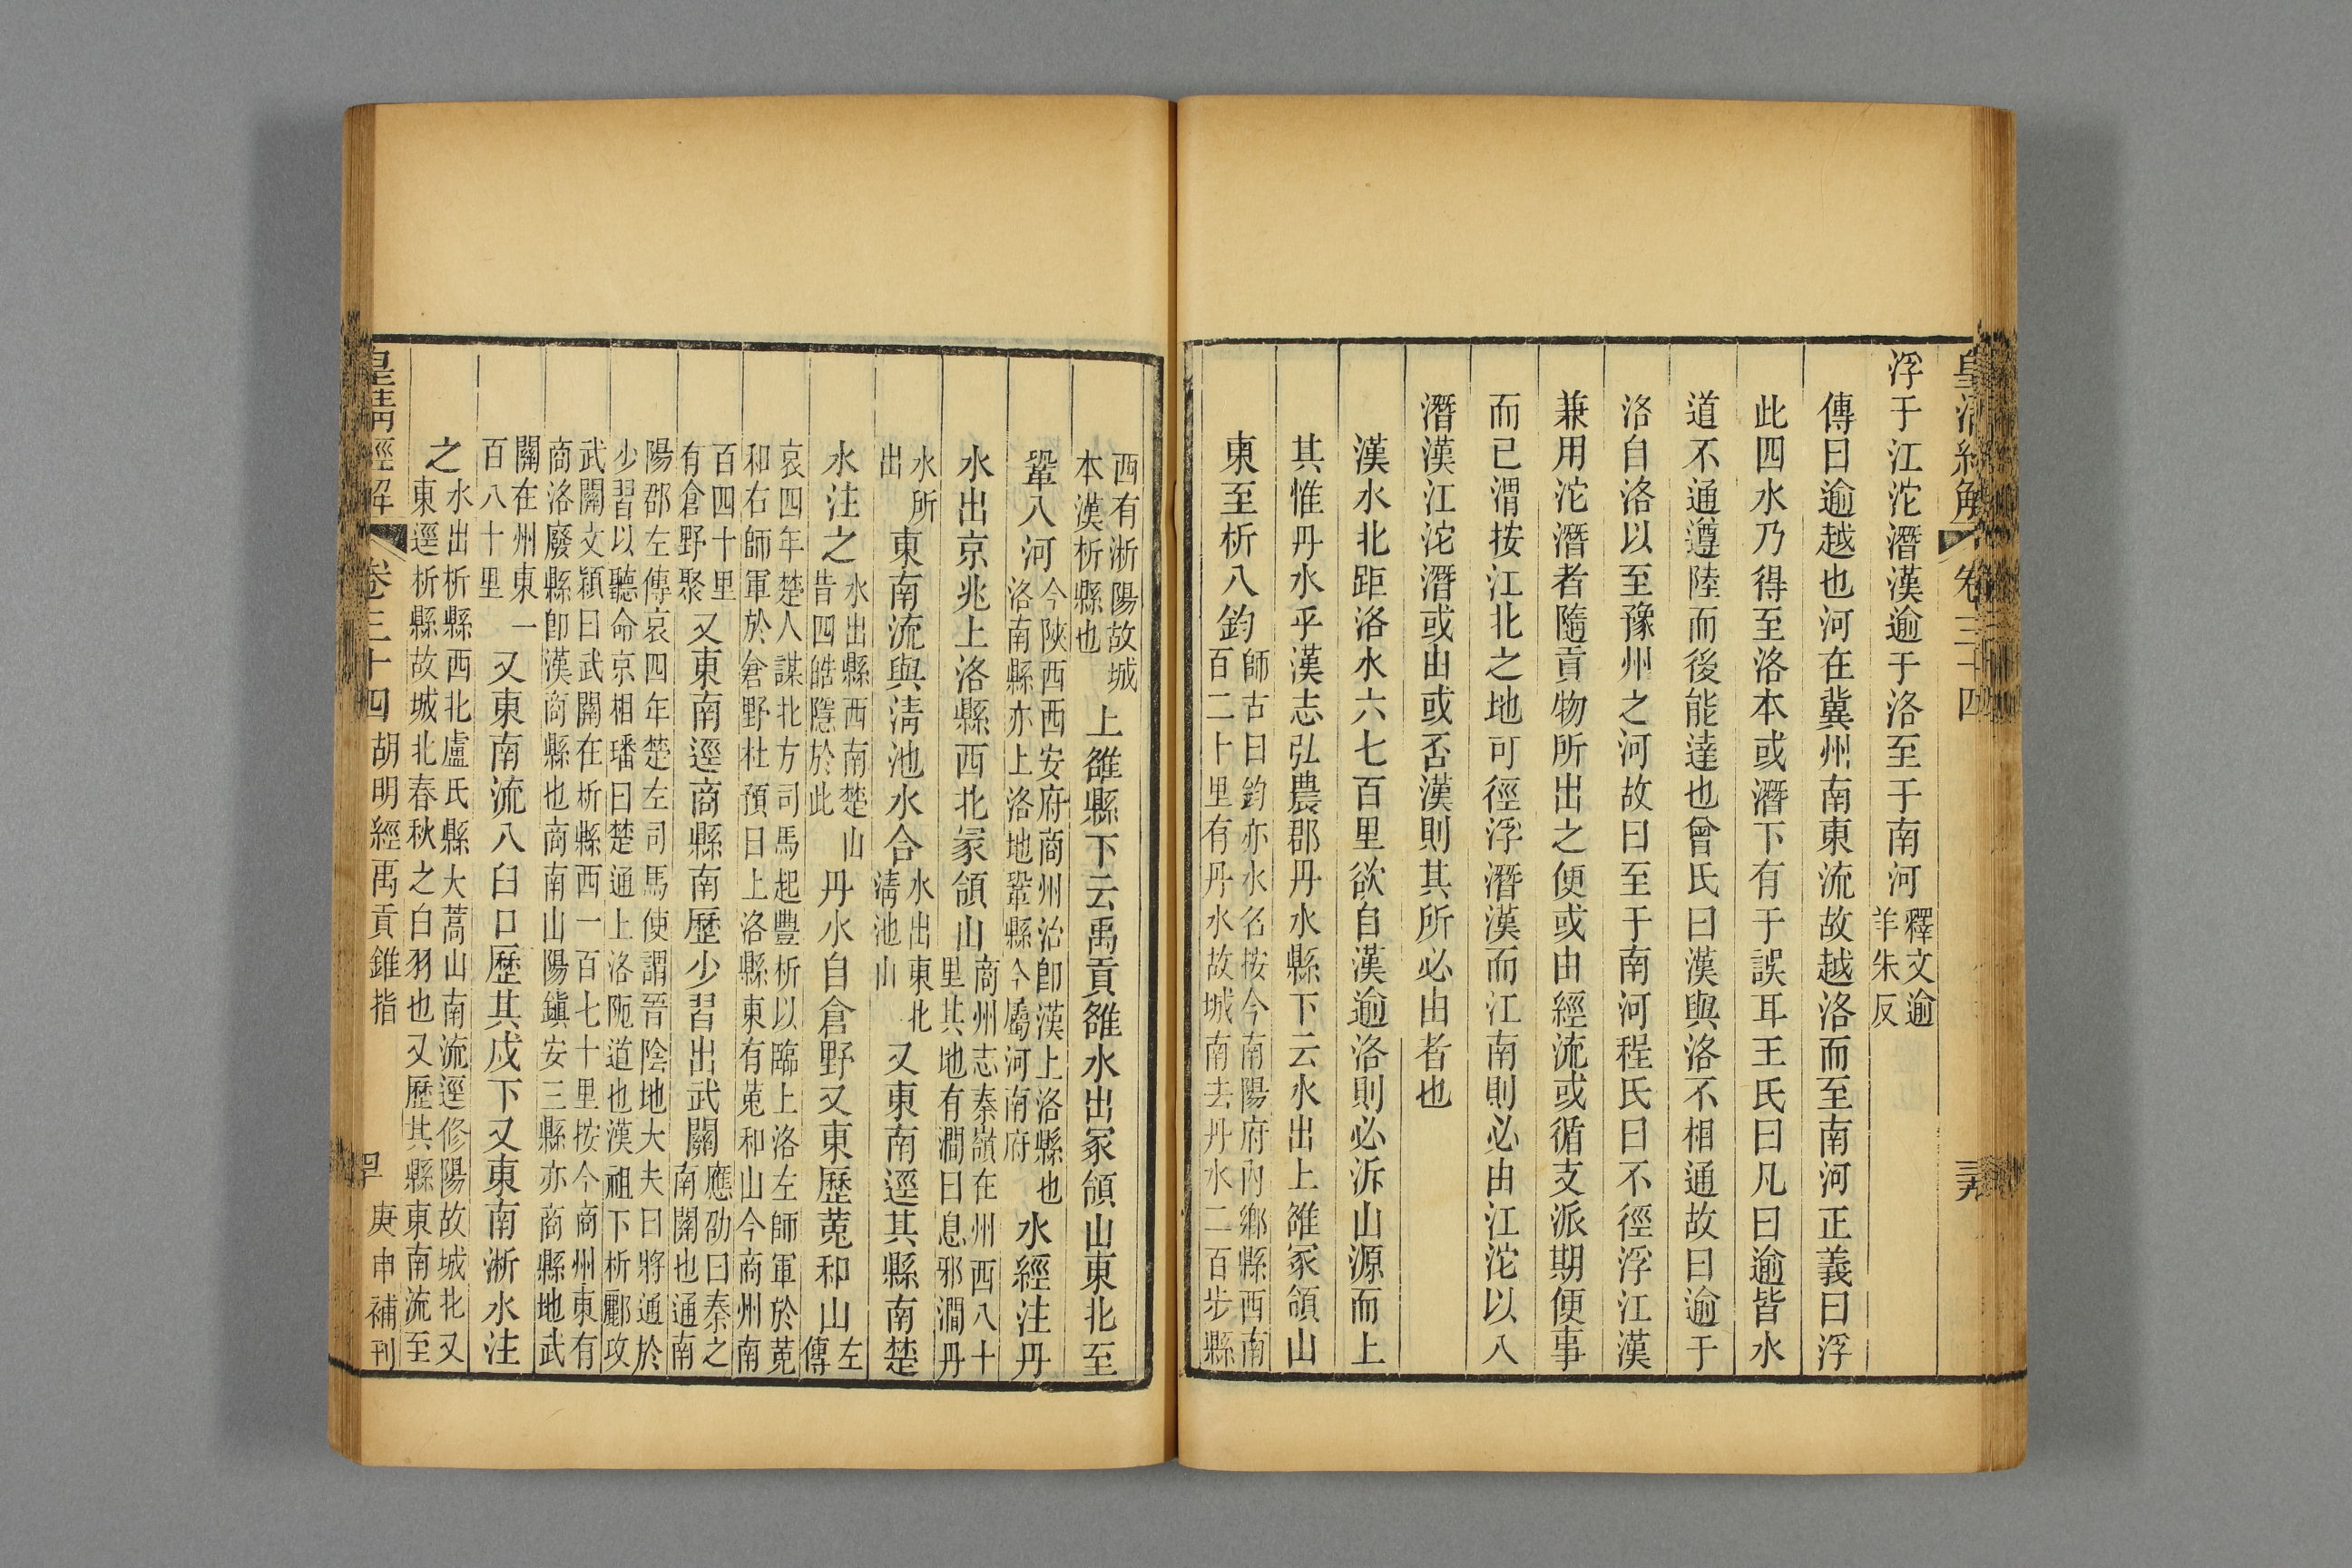 皇清經解 卷三十四 三九
浮于江沱潛漢逾于洛至于南河釋文逾羊朱反
傳曰逾越也河在冀州南東流故越洛而至南河正義曰浮
此四水乃得至洛本或潛下有于誤耳王氏曰凡曰逾皆水
道不通遵陸而後能達也曾氏曰漢與洛不相通故曰逾于
洛自洛以至豫州之河故曰至于南河程氏曰不徑浮江漢
兼用沱潛者隨貢物所出之便或由經流或循支派期便事
而已渭按江北之地可徑浮潛漢而江南則必由江沱以入
潛漢江沱潛或由或否漢則其所必由者也
漢水北距洛水六七百里欲自漢逾洛則必泝山源而上
其惟丹水乎漢志弘農郡丹水縣下云水出上雒冢領山
東至析入鈞師古曰鈞亦水名按今南陽府內鄉縣西南百二十里有丹水故城南去丹水二百步縣
西有淅陽故城本漢析縣也上雒縣下云禹貢雒水出冢領山東北至
鞏入河今陝西西安府商州治卽漢上洛縣也洛南縣亦上洛地鞏縣今屬河南府水經注丹
水出京兆上洛縣西北冢領山商州志秦嶺在州西八十里其地有澗曰息邪澗丹
水所出東南流與淸池水合水出東北淸池山又東南逕其縣南楚
水注之水出縣西南楚山昔四皓隱於此丹水自倉野又東歷菟和山左傳
哀四年楚人謀北方司馬起豐析以臨上洛左師軍於菟和右師軍於倉野杜預曰上洛縣東有菟和山今商州南
百四十里有倉野聚又東南逕商縣南歷少習出武關應劭曰秦之南關也通南
陽郡左傳哀四年楚左司馬使謂晉陰地大夫曰將通於少習以聽命京相璠曰楚通上洛阨道也漢祖下析酈攻
武關文穎曰武關在析縣西一百七十里按今商州東有商洛廢縣卽漢商縣也商南山陽鎭安三縣亦商縣地武
關在州東一百八十里又東南流入臼口歷其戍下又東南淅水注
之水出析縣西北盧氏縣大蒿山南流逕修陽故城北又東逕析縣故城北春秋之白羽也又歷其縣東南流至
皇清經解 卷三十四 胡明經禹貢錐指 四十 庚申補刊